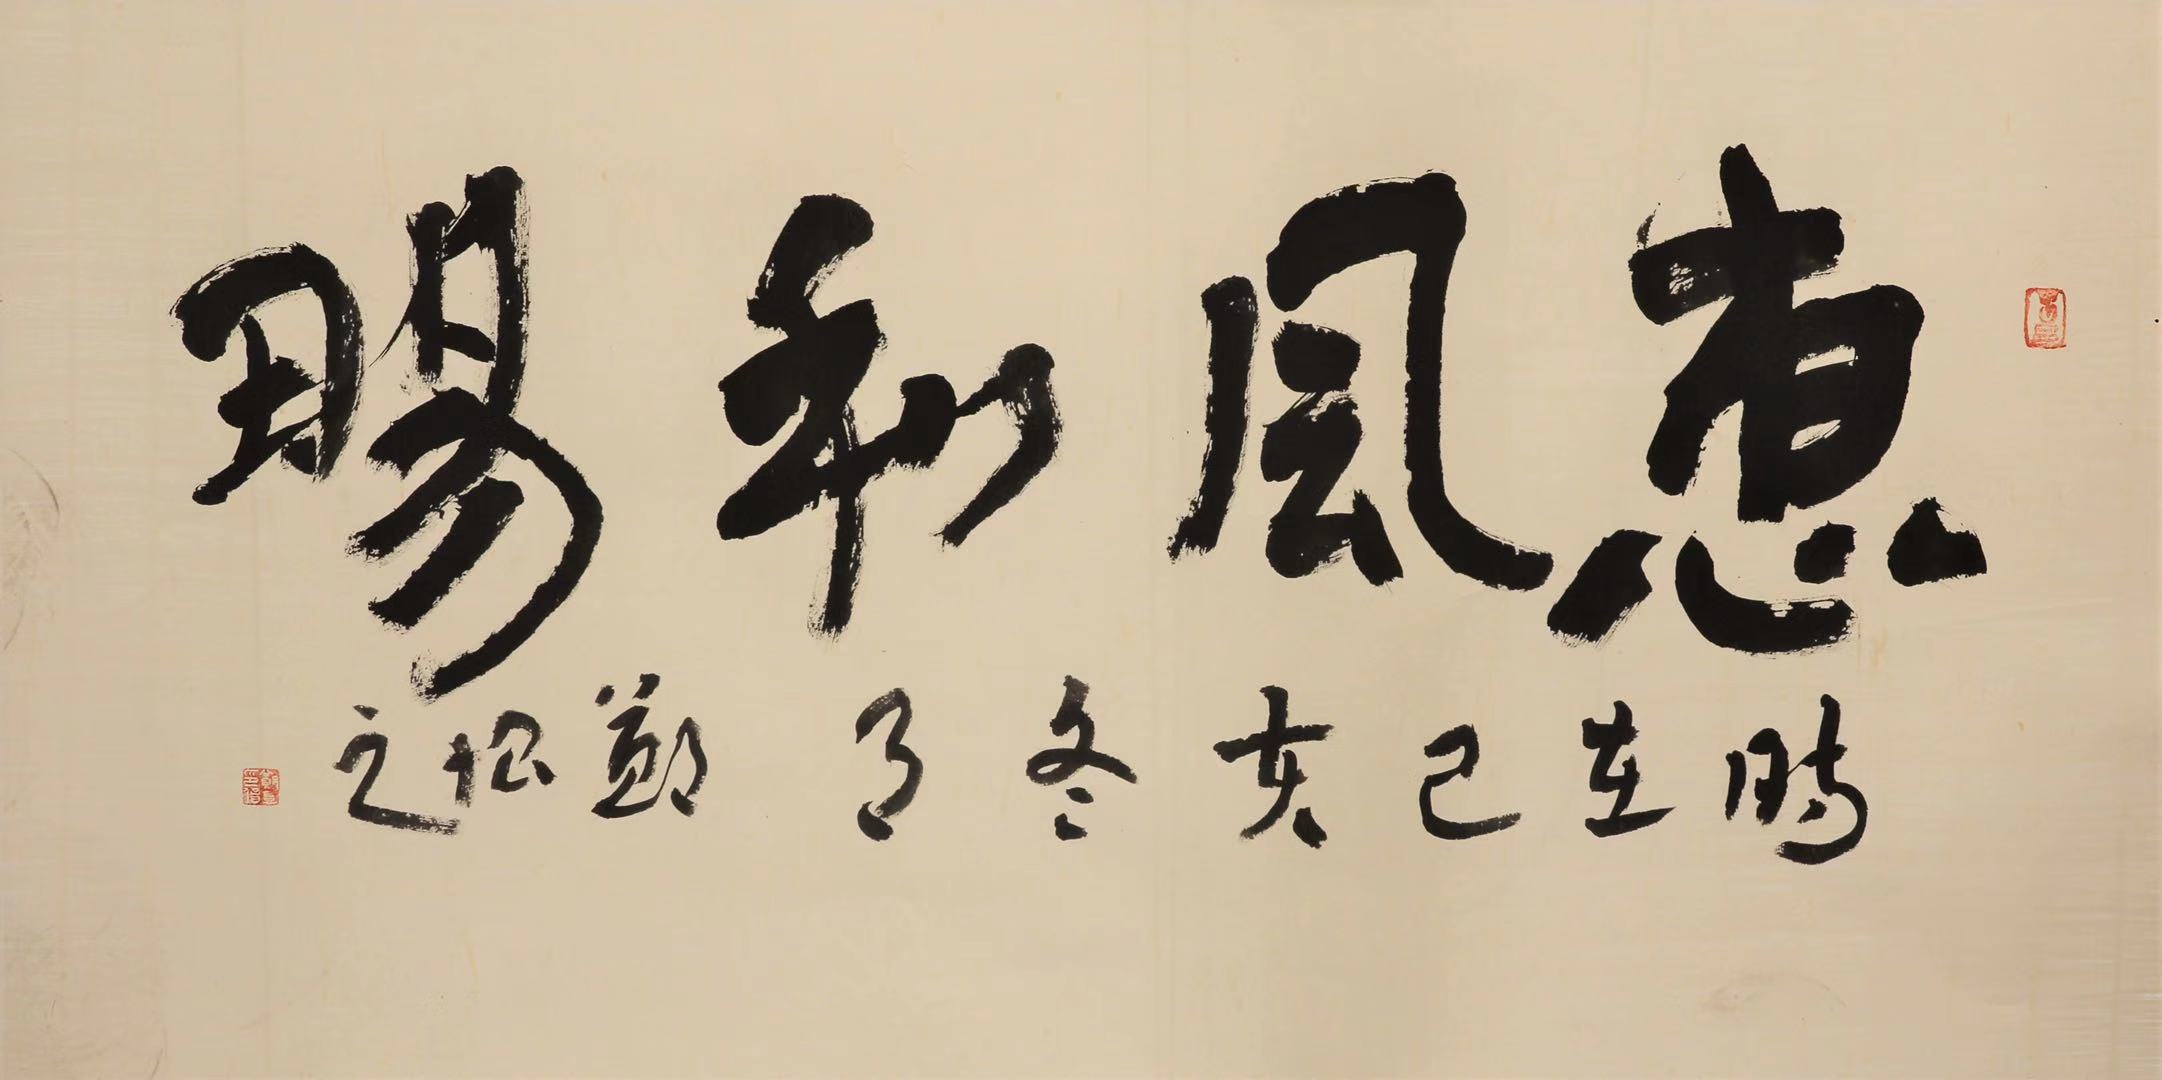 惠風和暢
時在己亥冬月鄭之